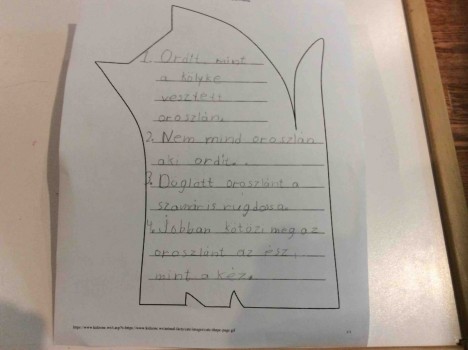 1. Ordít, mint
a kölyke
vesztett
oroszlán.
2. Nem mind oroszlán
aki ordít.
3. Döglött oroszlánt a
szamár is rugdossa.
4. Jobban kötözi meg az
oroszlánt az ész,
mint a kéz.